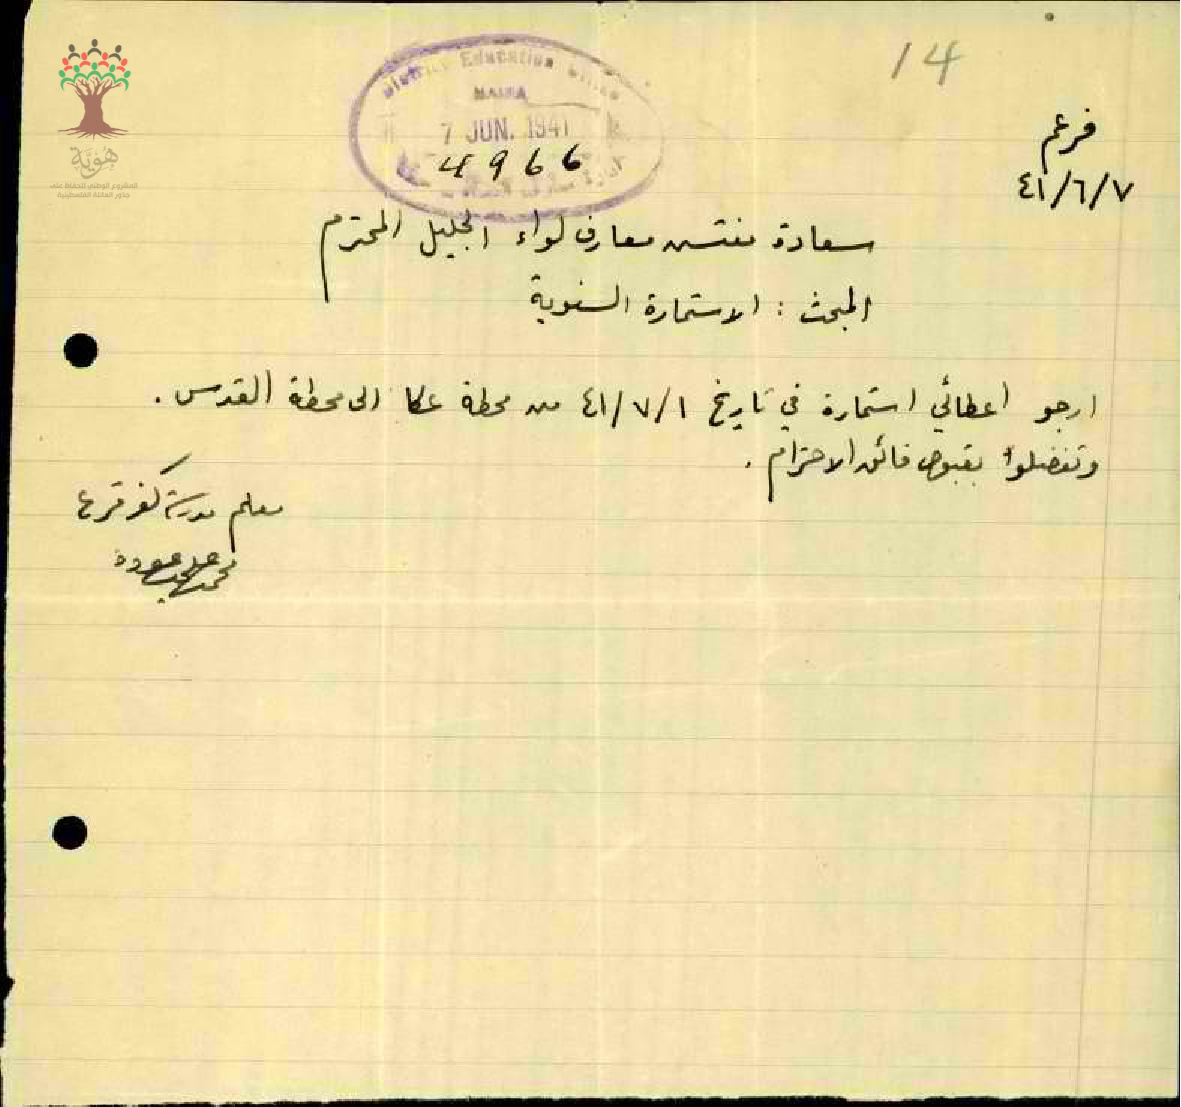 14
District Education Office
HAIFA
7 JUN. 1941
4966
فرعم
٤١/٦/٧
سعادة مفتش معارف لواء الجليل المحترم
المبحث : الاستمارة السنوية
ارجو اعطائي استمارة في تاريخ ٤١/٧/١ من محطة عكا الى محطة القدس .
وتفضلوا بقبول فائق الاحترام .
معلم مدرسة كفر قرع
عودة
هوية
المشروع الوطني للحفاظ على
جذور العائلة الفلسطينية